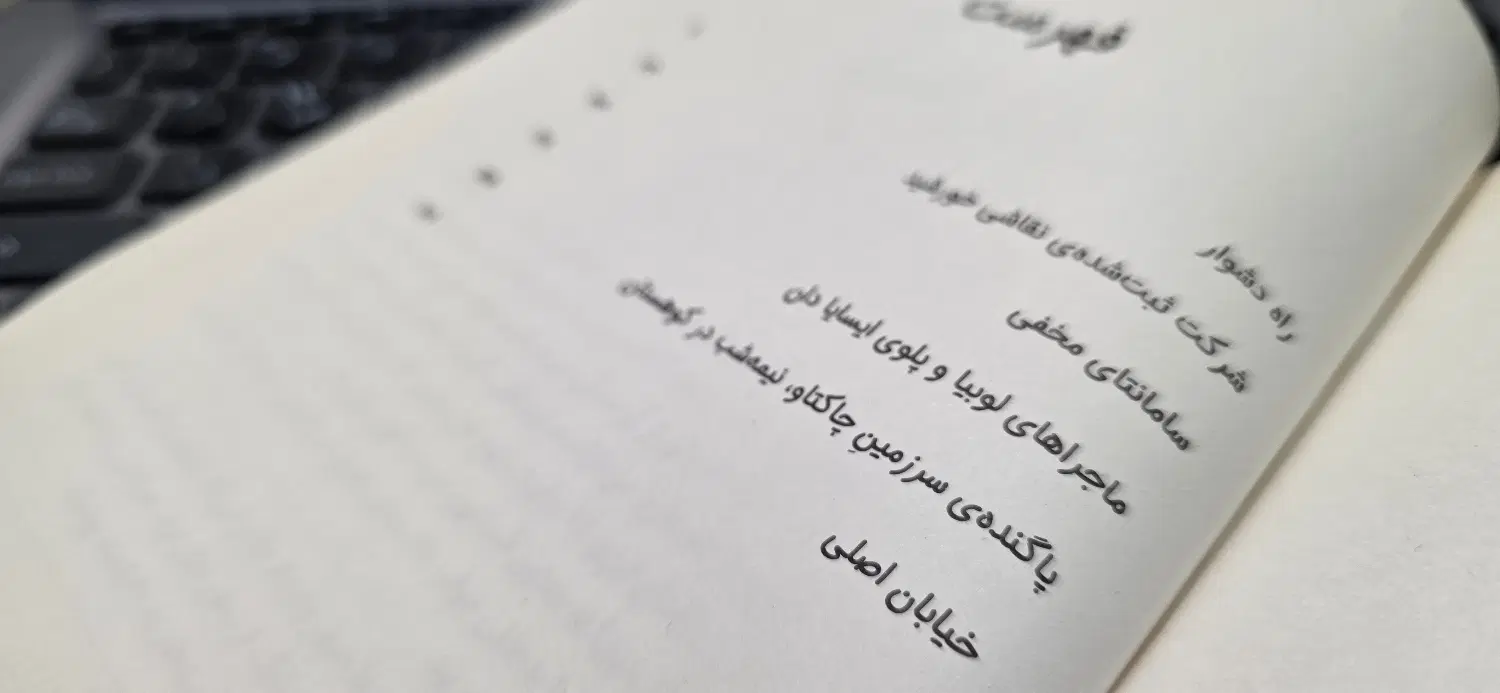 فهرست
راه دشوار
شرکت ثبت‌شده‌ی نقاشی خورشید
سامانتای مخفی
ماجراهای لوبیا و پلوی ایسایا دان
پاگنده‌ی سرزمینِ چاکتاو، نیمه‌شب در کوهستان
خیابان اصلی